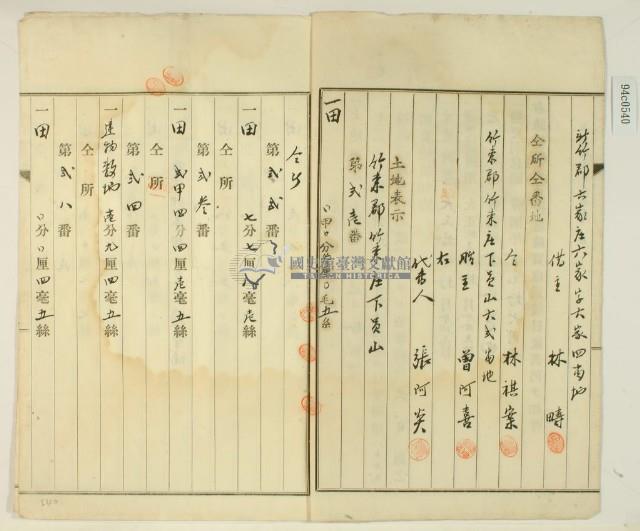 新竹郡六家庄六家字六家四番地
借主 林疇
仝所仝番地
仝 林祺案
竹東郡竹東庄下員山六弍番地
賍主 曽阿喜
右
代書人 張阿炎
土地表示
竹東郡竹東庄下員山
第弍壱番
一田
仝所
第弍弍番
一田 七分七厘 毫壱絲
仝所
第弍参番
一田 弍甲四分四厘壱毫五絲
仝所
第弍四番
一建物敷地 壱分九厘四毫五絲
仝所
第弍八番
一田 〇分〇厘四毫五絲
94c0540
國史館臺灣文獻館
TAIWAN HISTORICA